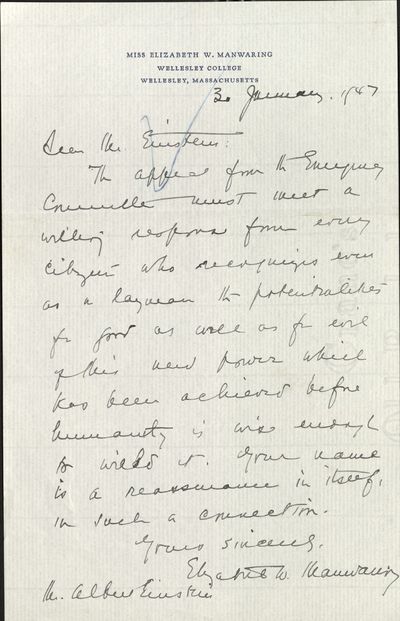 MISS ELIZABETH W. MANWARING
WELLESLEY COLLEGE
WELLESLEY, MASSACHUSETTS
3 January, 1947
Dear Mr. Einstein:
The appeal from the Emergency
Committee must meet a
willing response from every
citizen who recognizes even
as a layman the potentialities
for good as well as for evil
of this new power which
has been achieved before
humanity is wise enough
to wield it. Your name
is a reassurance in itself,
in such a connection.
Yours sincerely,
Elizabeth W. Manwaring
Mr. Albert Einstein